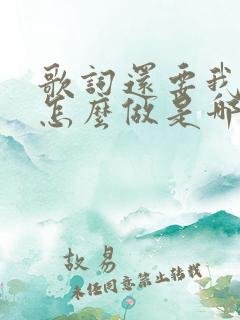 歌詞還要我
怎麼做是那
故易
未经同意禁止转载